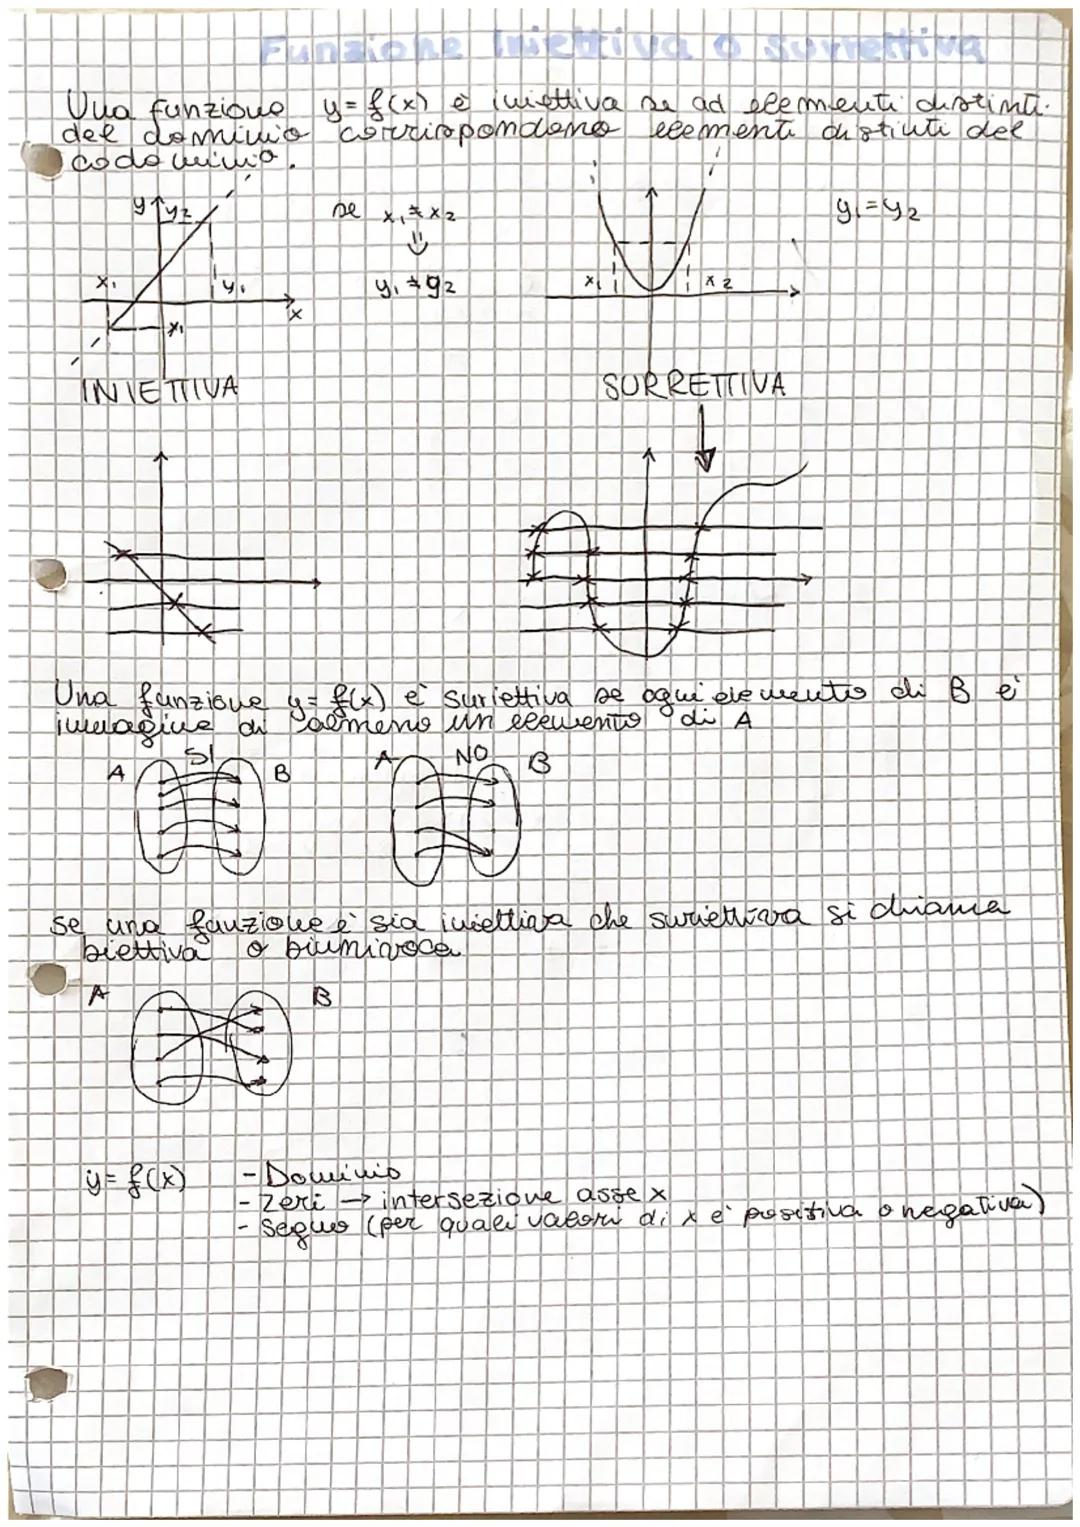 Funzione Iniettiva o Surrettiva
Una funzione y=f(x) è iniettiva se ad elementi distinti
del dominio corrispondono elementi distinti del
codominio.
y y2
x1 y1
x
x1
INIETTIVA
se x1≠x2
⇓
y1≠y2
x1 x2
y1=y2
SURRETTIVA
Una funzione y=f(x) è suriettiva se ogni elemento di B è
immagine di almeno un elemento di A
A SI B
A NO B
se una funzione è sia iniettiva che suriettiva si chiama
biettiva o biumivoca
A B
y=f(x) - Dominio
- Zeri → intersezione asse x
- segno (per quali valori di x è positiva o negativa)